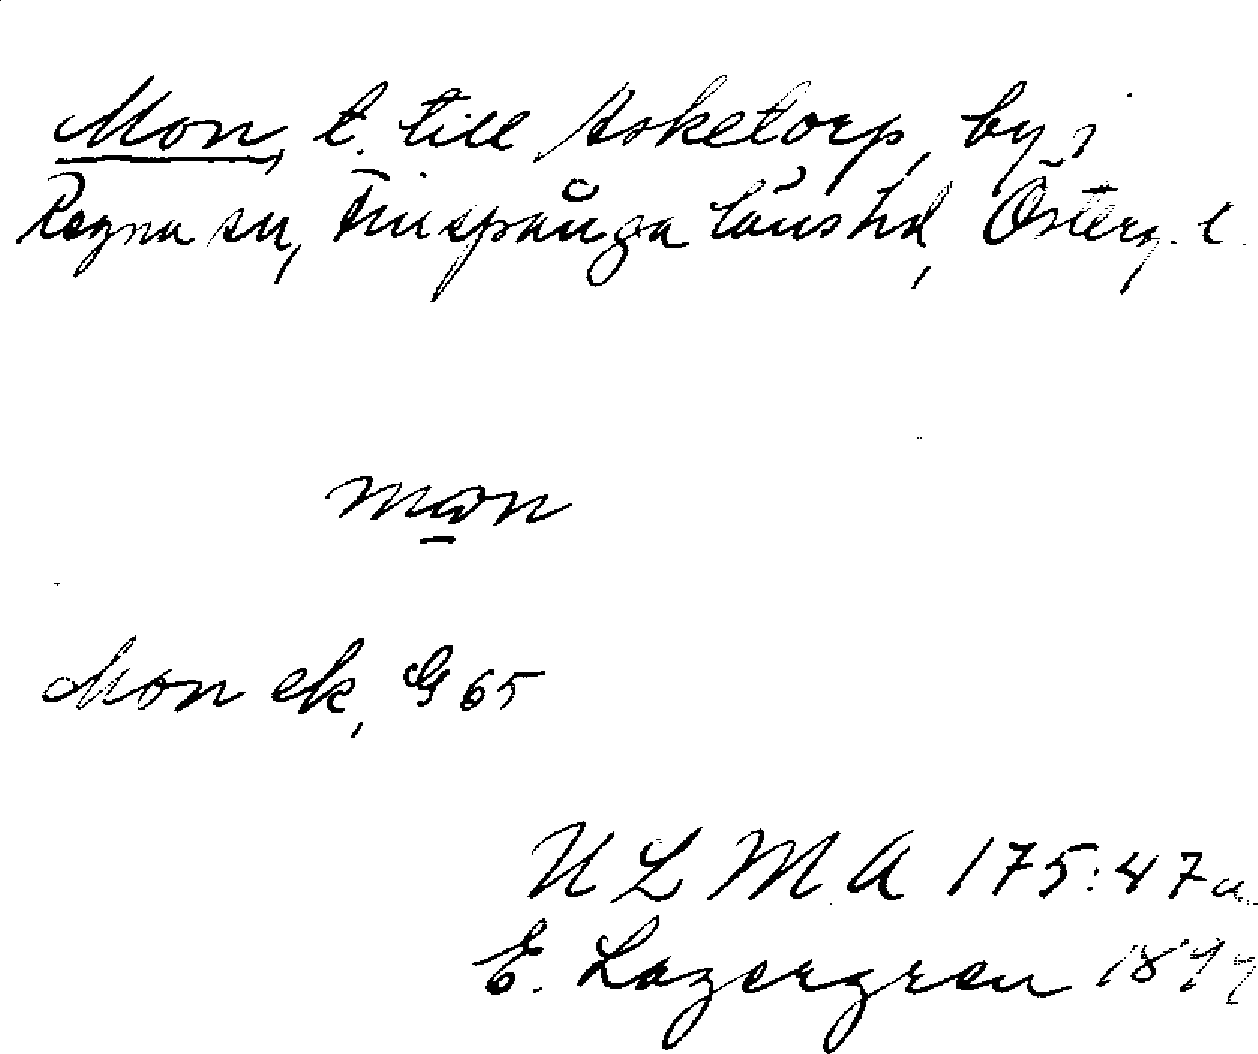 Mon, t. till Asketorp, by i
Regna sn, Finspånga länshd, Österg. l.
mɷn
Mon ek, G 65
U L M A 175:47a.
E. Lagergren